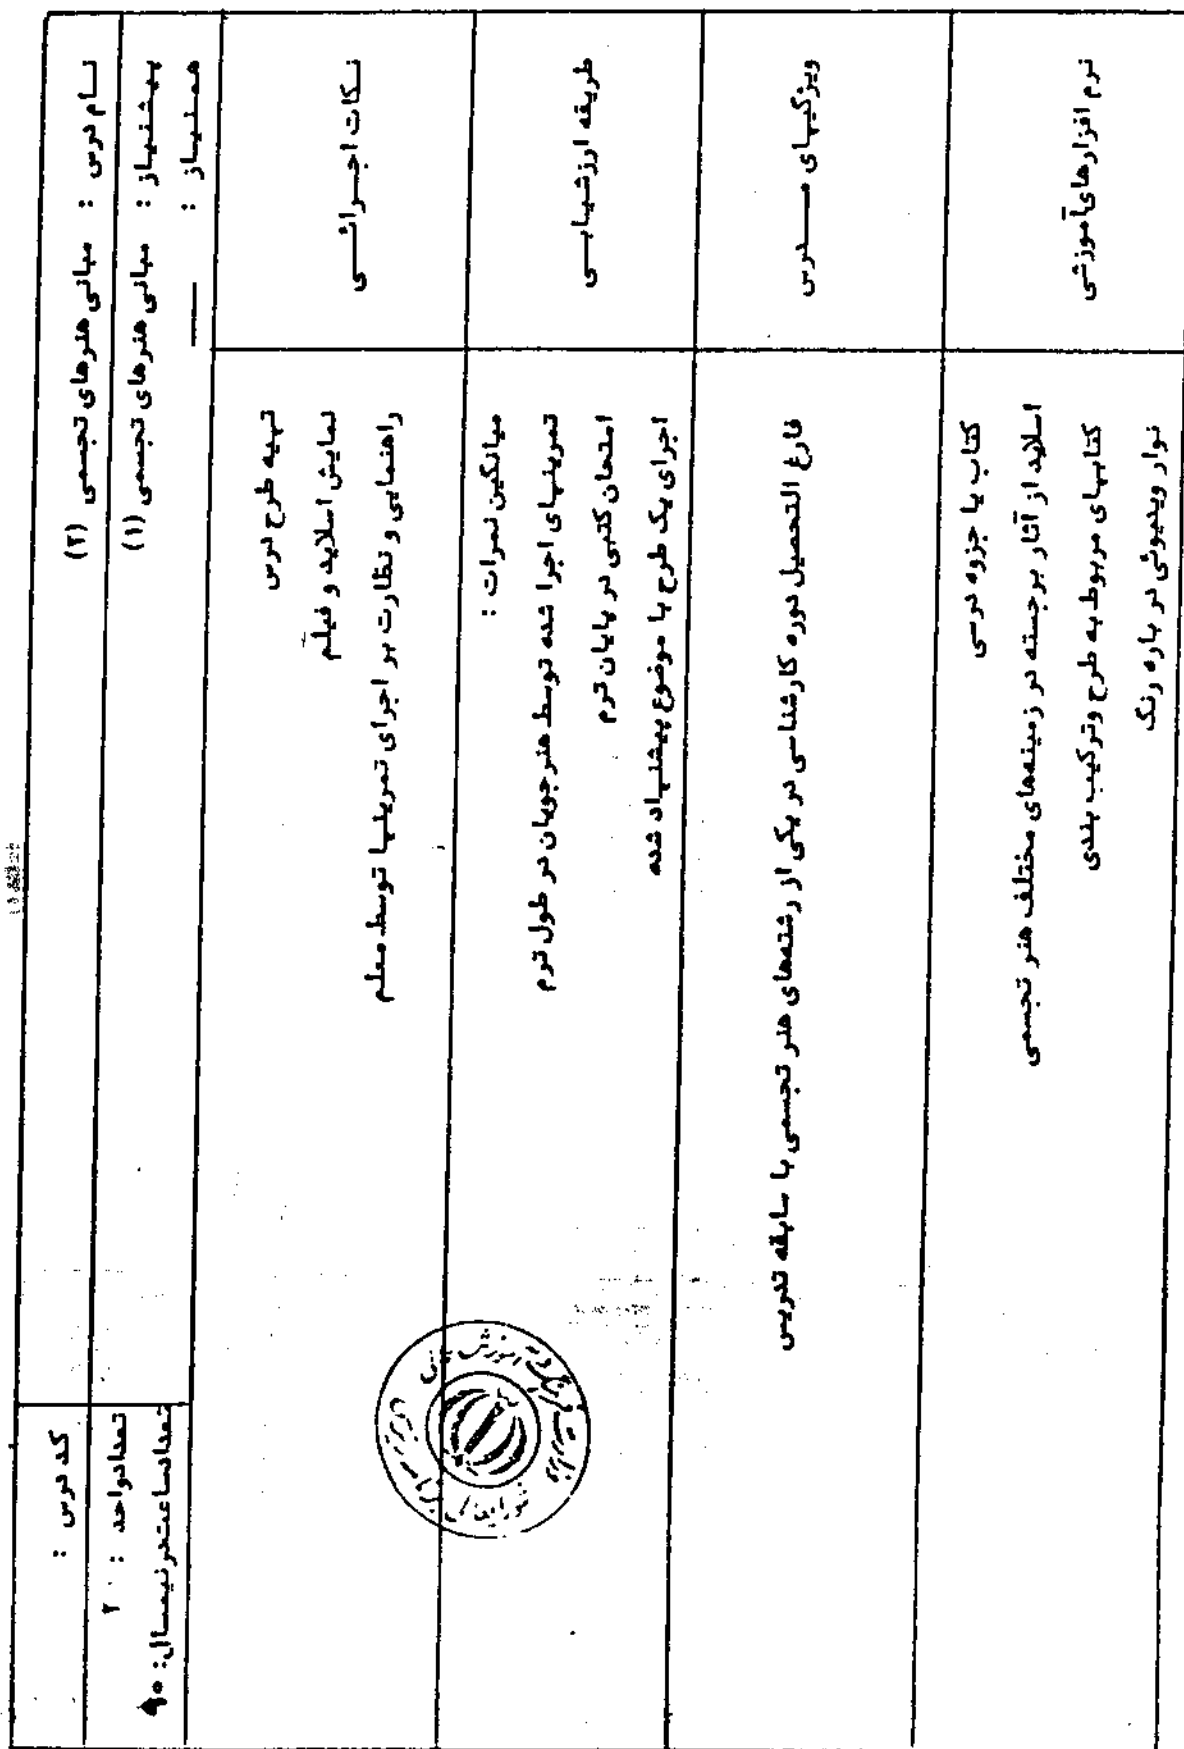 نام درس : مبانی هنرهای تجسمی (۲)
کد درس :
پیشنیاز : مبانی هنرهای تجسمی (۱)
تعدادواحد : ۲
همنیاز : ——
تعدادساعت‌درنیمسال: ۹۰
نکات اجرائی
تهیه طرح درس
نمایش اسلاید و فیلم
راهنمایی و نظارت بر اجرای تمرینها توسط معلم
طریقه ارزشیابی
میانگین نمرات :
تمرینهای اجرا شده توسط هنرجویان در طول ترم
امتحان کتبی در پایان ترم
اجرای یک طرح با موضوع پیشنهاد شده
ویژگیهای مدرس
فارغ التحصیل دوره کارشناسی در یکی از رشته‌های هنر تجسمی با سابقه تدریس
نرم افزارهای‌آموزشی
کتاب یا جزوه درسی
اسلاید از آثار برجسته در زمینه‌های مختلف هنر تجسمی
کتابهای مربوط به طرح وترکیب بندی
نوار ویدیوئی در باره رنگ